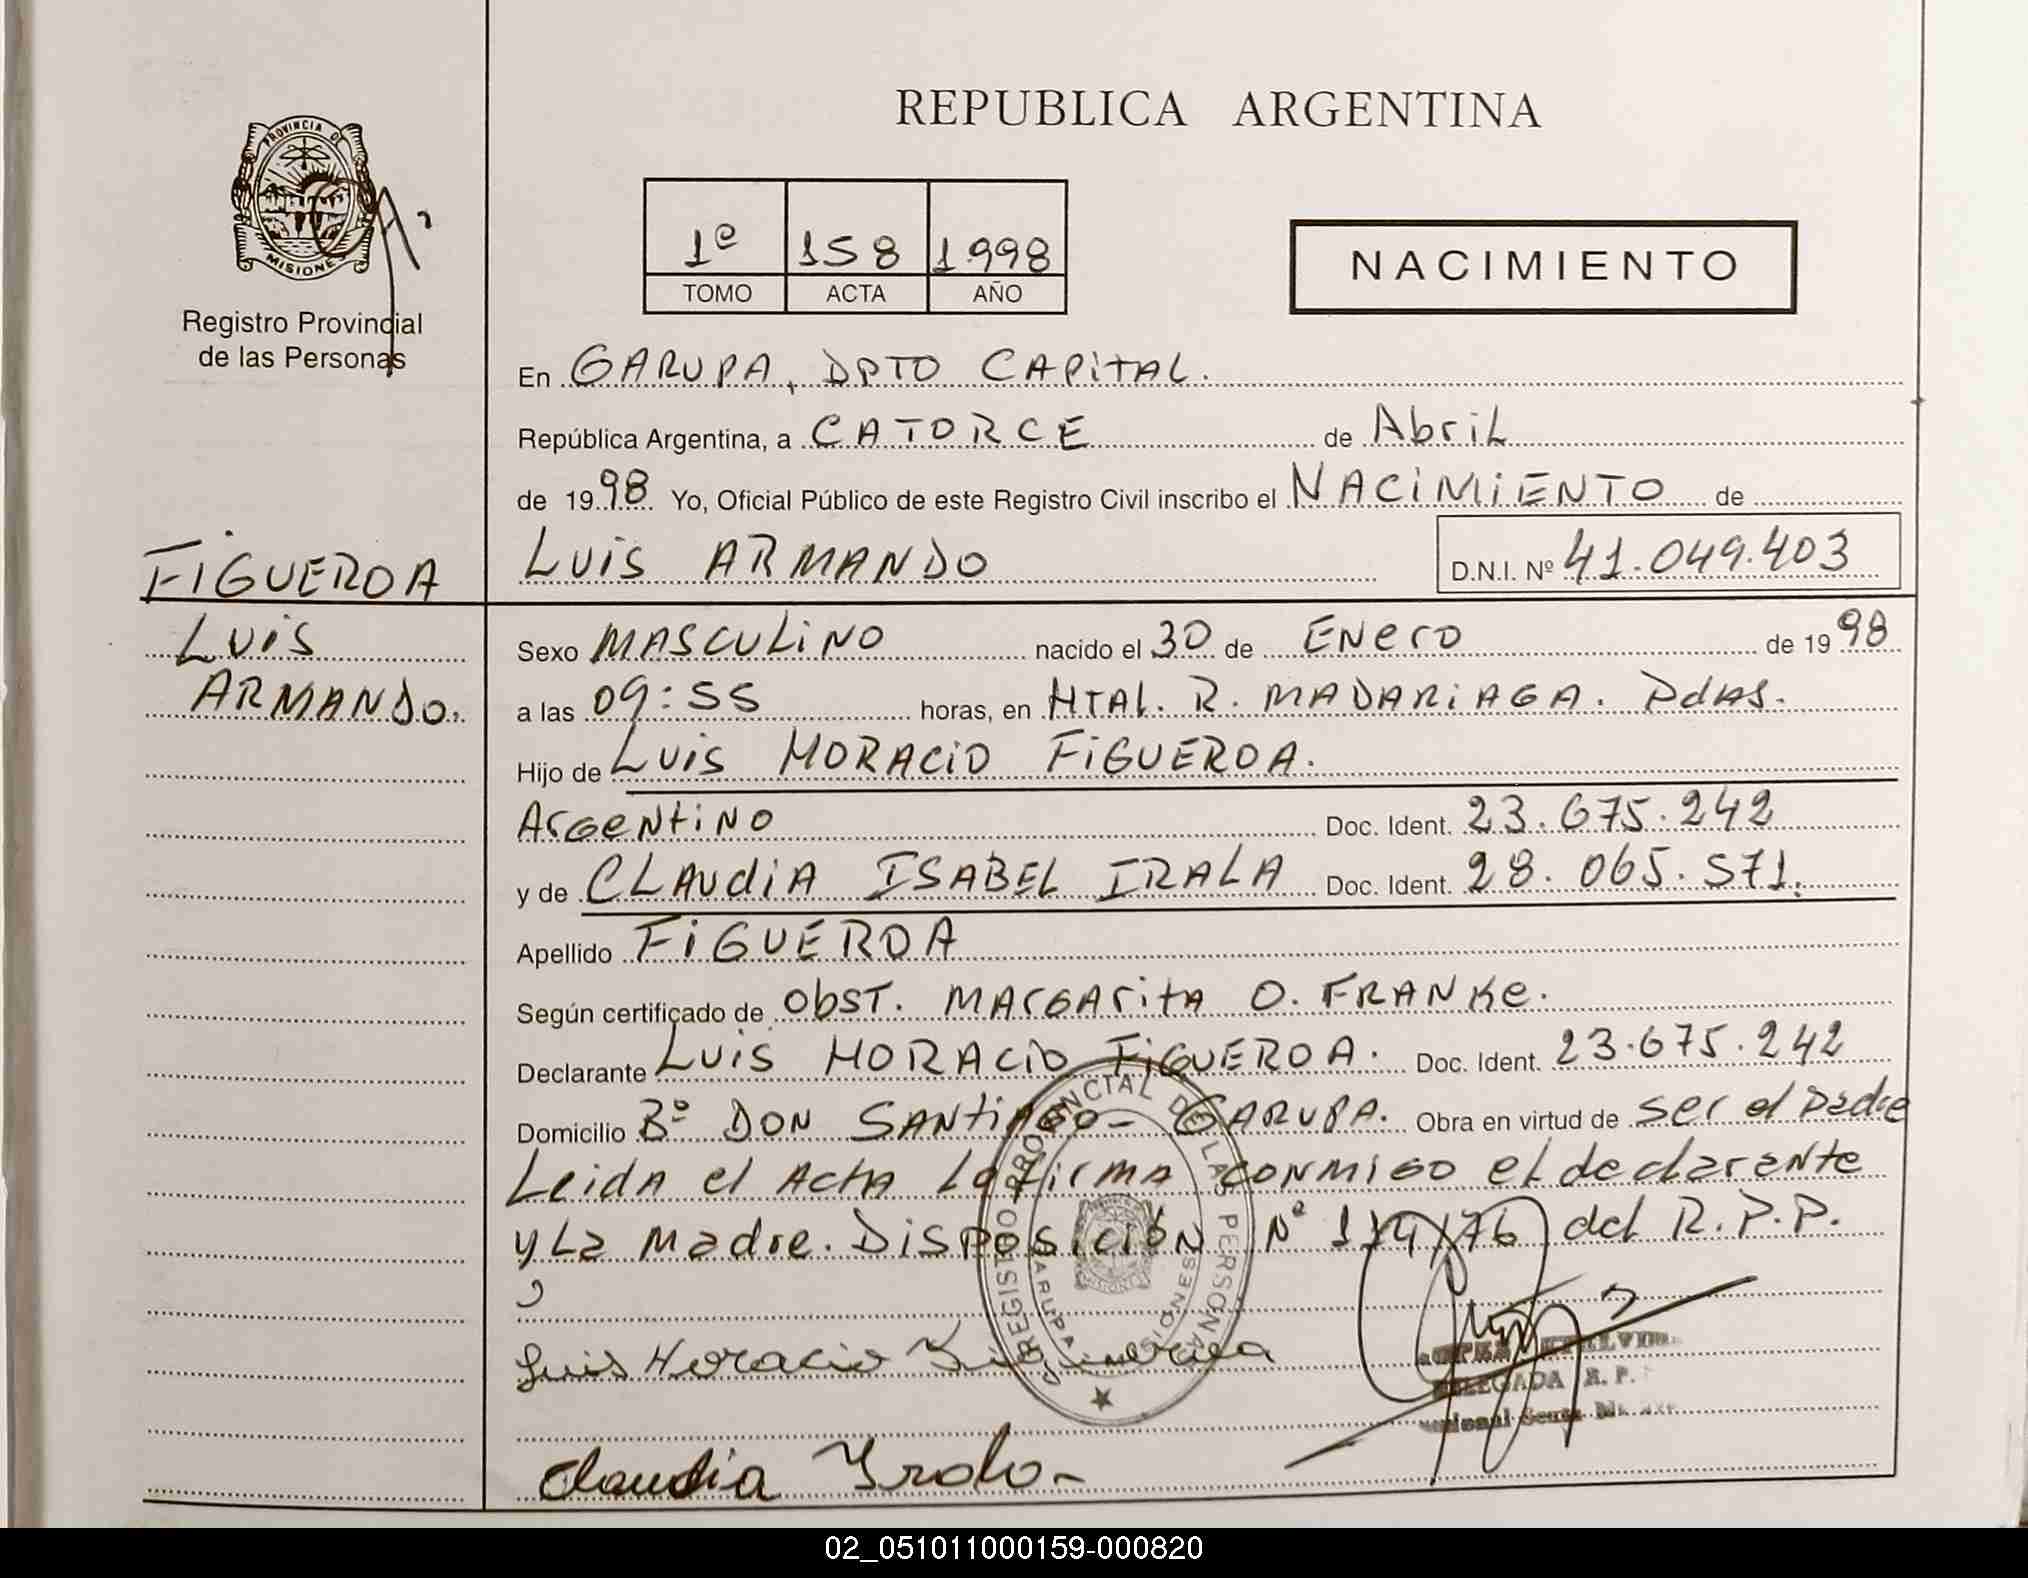 REPUBLICA ARGENTINA
PROVINCIA DE
MISIONES
Registro Provincial
de las Personas
1º 158 1998
TOMO ACTA AÑO
NACIMIENTO
En GARUPA, DPTO CAPITAL.
República Argentina, a CATORCE de Abril
de 1998 Yo, Oficial Público de este Registro Civil inscribo el NACIMIENTO de
FIGUEROA
LUIS ARMANDO D.N.I. Nº 41.049.403
LUIS
ARMANDO.
Sexo MASCULINO nacido el 30 de ENERO de 1998
a las 09:55 horas, en HTAL. R. MADARIAGA. PdAS.
Hijo de LUIS HORACIO FIGUEROA.
ArGeNtiNO Doc. Ident. 23.675.242
y de CLAUdiA ISABEL IRALA Doc. Ident. 28.065.571.
Apellido FIGUEROA
Según certificado de ObST. MARGARitA O. FRANKe.
Declarante LUIS HORACIO FIGUEROA. Doc. Ident. 23.675.242
Domicilio Bº DON SANTIAGO - GARUPA. Obra en virtud de ser el Padre
Leida el Acta La firma conmigo el declarante
y La Madre. Disposición Nº 114/76 del R.P.P.
REGISTRO PROVINCIAL DE LAS PERSONAS
GARUPA MISIONES
Luis Horacio Figueroa
DELEGADA R. P.
Claudia Irala -
02_051011000159-000820